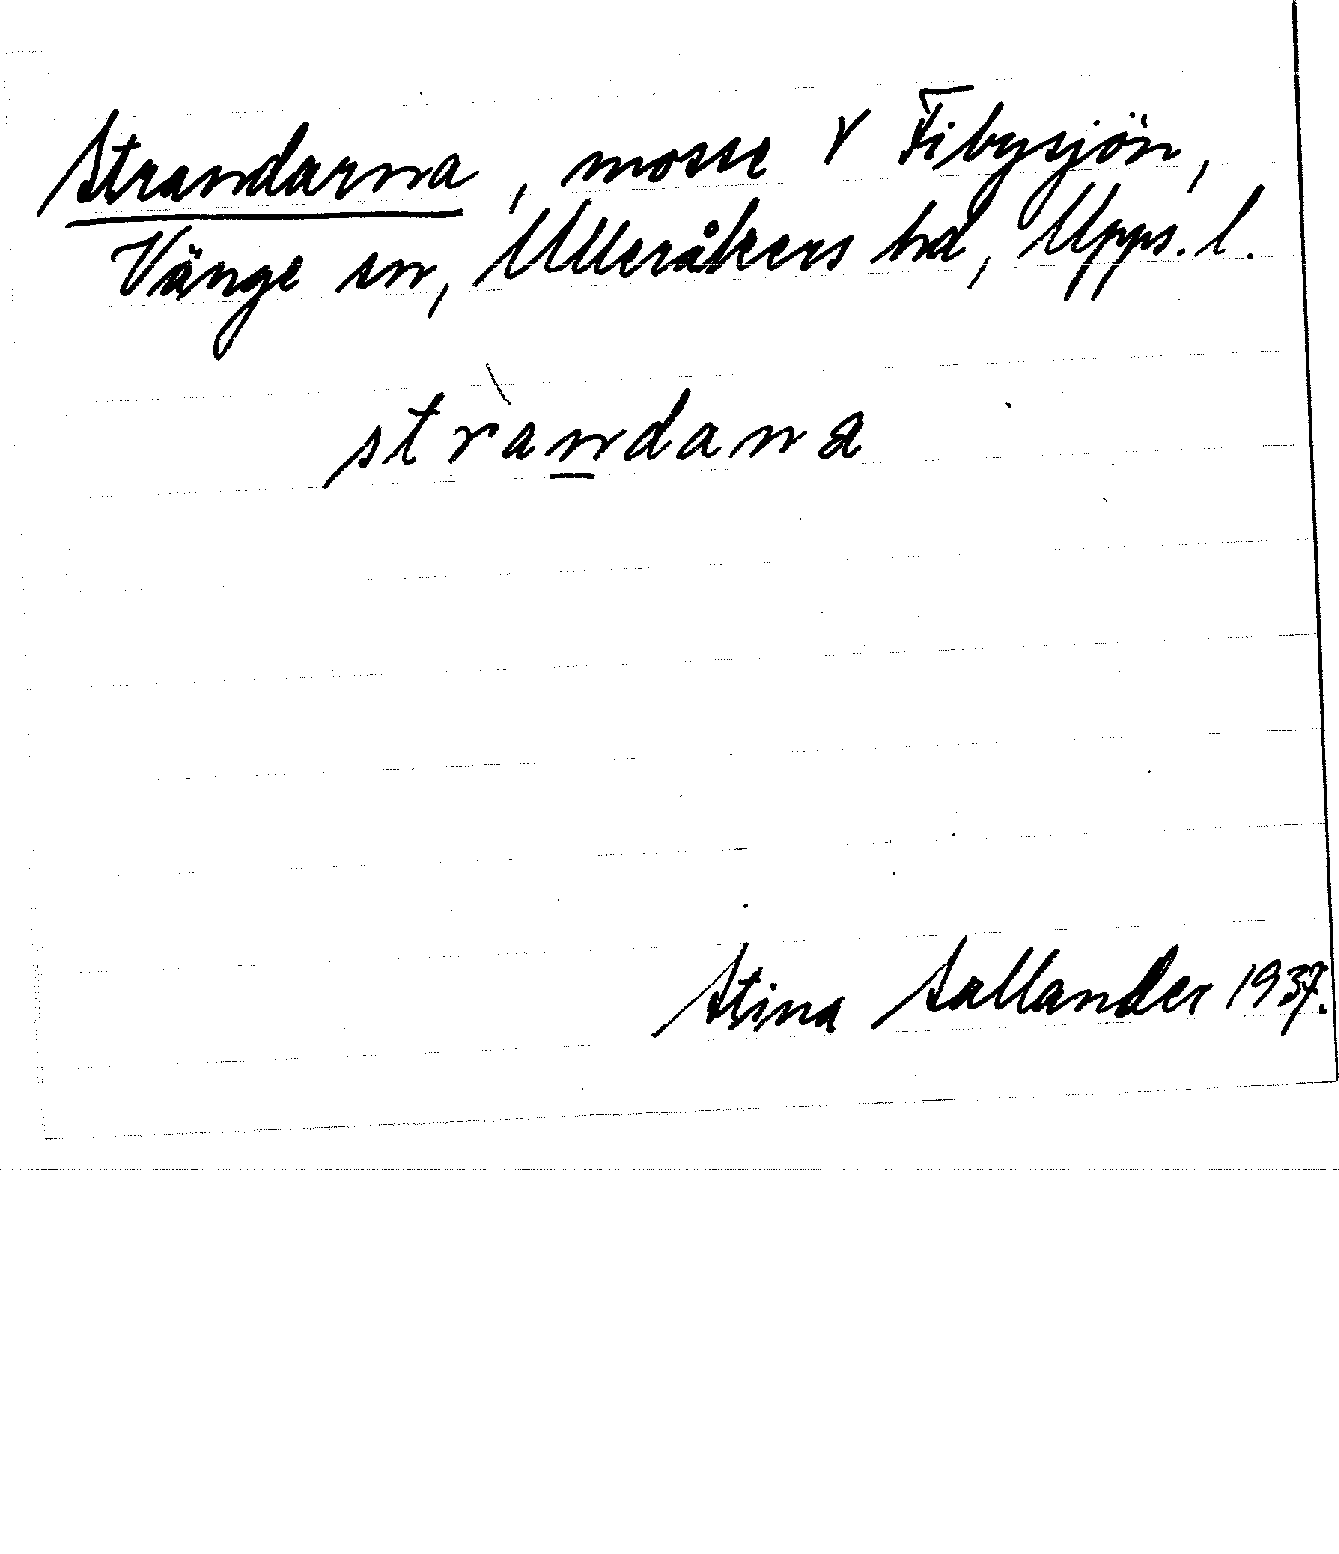 Strandarna, mosse V Fibysjön,
Vänge sn, Ulleråkers hd, Upps. l.
stràndana
Stina Sallander 1937.